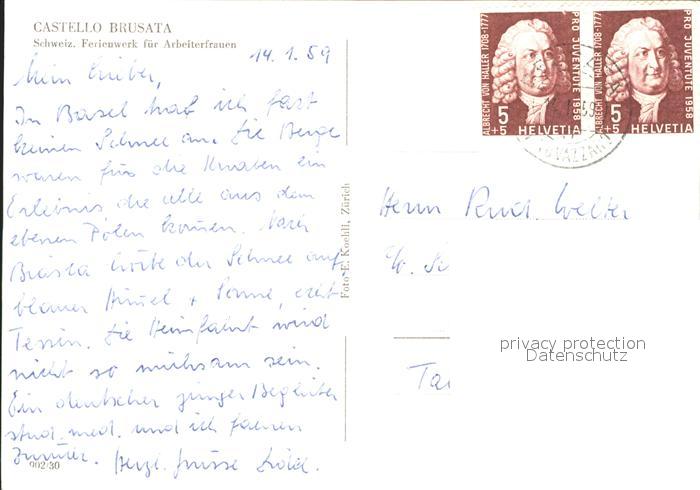 CASTELLO BRUSATA
Schweiz. Ferienwerk für Arbeiterfrauen
14.1.59
Mein Lieber,
In Basel traf ich fast
keinen Schnee an. Die Berge
waren für die Knaben ein
Erlebnis die alle aus dem
ebenen Polen kommen. Nach
Biasca hörte der Schnee auf,
blauer Himmel + Sonne, echt
Tessin. Die Heimfahrt wird
nicht so mühsam sein.
Ein deutscher junger Begleiter
stud. med. und ich fahren
zurück. Herzl. Grüsse
002/30
Foto E. Koehli, Zürich
ALBRECHT VON HALLER 1708-1777
PRO JUVENTUTE 1958
5
+5
HELVETIA
ALBRECHT VON HALLER 1708-1777
PRO JUVENTUTE 1958
5
+5
HELVETIA
Herrn Rud. Welter
privacy protection
Datenschutz